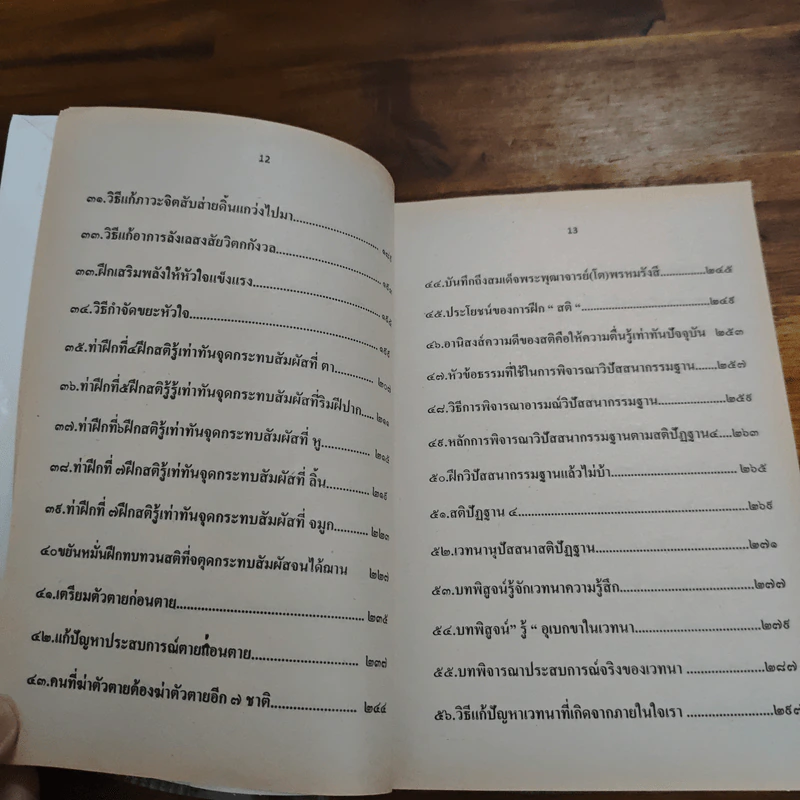 12
๓๑.วิธีแก้ภาวะจิตสับส่ายดิ้นแกว่งไปมา
๓๓.วิธีแก้อาการลังเลสงสัยวิตกกังวล
๓๓.ฝึกเสริมพลังให้หัวใจแข็งแรง
๓๔.วิธีกำจัดขยะหัวใจ
๓๕.ท่าฝึกที่๔ฝึกสติรู้เท่าทันจุดกระทบสัมผัสที่ ตา...............๒๐๗
๓๖.ท่าฝึกที่๕ฝึกสติรู้รู้เท่าทันจุดกระทบสัมผัสที่ริมฝีปาก....๒๑๑
๓๗.ท่าฝึกที่๖ฝึกสติรู้เท่าทันจุดกระทบสัมผัสที่ หู................๒๑๕
๓๘.ท่าฝึกที่ ๗ฝึกสติรู้เท่ทันจุดกระทบสัมผัสที่ ลิ้น...............๒๑๙
๓๙.ท่าฝึกที่ ๗ฝึกสติรู้เท่าทันจุดกระทบสัมผัสที่ จมูก...........๒๒๓
๔๐ขยันหมั่นฝึกทบทวนสติที่จตุดกระทบสัมผัสจนได้ฌาน ๒๒๗
๔๑.เตรียมตัวตายก่อนตาย..................................................๒๓๕
๔๒.แก้ปัญหาประสบการณ์ตายก่อนตาย............................๒๓๗
๔๓.คนที่ฆ่าตัวตายต้องฆ่าตัวตายอีก ๗ ชาติ...................... ๒๔๔
13
๔๔.บันทึกถึงสมเด็จพระพุฒาจารย์(โต)พรหมรังสี..............๒๔๕
๔๕.ประโยชน์ของการฝึก “ สติ “........................................๒๔๙
๔๖.อานิสงส์ความดีของสติคือให้ความตื่นรู้เท่าทันปัจจุบัน ๒๕๓
๔๗.หัวข้อธรรมที่ใช้ในการพิจารณาวิปัสสนากรรมฐาน.......๒๕๗
๔๘.วิธีการพิจารณาอารมณ์วิปัสสนากรรมฐาน....................๒๕๙
๔๙.หลักการพิจารณาวิปัสสนากรรมฐานตามสติปัฏฐาน๔....๒๖๓
๕๐.ฝึกวิปัสสนากรรมฐานแล้วไม่บ้า............................... ๒๖๕
๕๑.สติปัฏฐาน ๔...........................................................๒๖๙
๕๒.เวทนานุปัสสนาสติปัฏฐาน......................................๒๗๑
๕๓.บทพิสูจน์รู้จักเวทนาความรู้สึก..................................๒๗๗
๕๔.บทพิสูจน์” รู้ “ อุเบกขาในเวทนา...............................๒๗๙
๕๕.บทพิจารณาประสบการณ์จริงของเวทนา ...................๒๘๗
๕๖.วิธีแก้ปัญหาเวทนาที่เกิดจากภายในใจเรา ......................๒๙๗